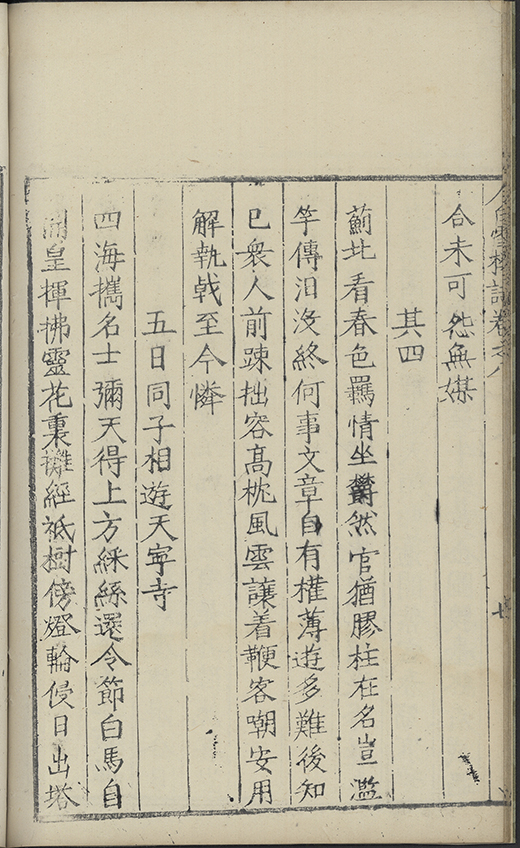 白雪樓詩卷之八
七
合未可怨無媒
其四
薊北看春色羈情坐鬱然官猶膠柱在名豈濫
竽傳汩沒終何事文章自有權薄遊多難後知
已衆人前踈拙容髙枕風雲讓着鞭客嘲安用
解執戟至今憐
五日同子相遊天寧寺
四海攜名士彌天得上方綵絲還令節白馬自
開皇揮拂靈花裏讎經祇樹傍燈輪侵日出塔